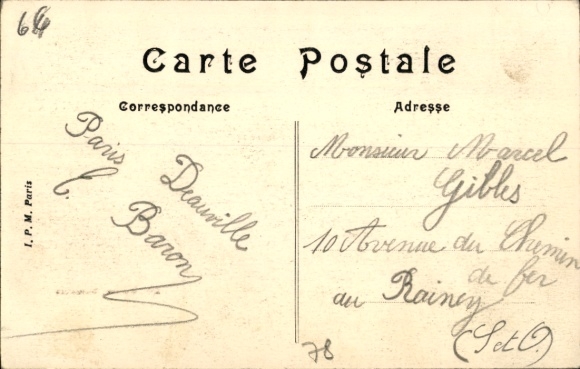 64
Carte Postale
Correspondance
Adresse
Paris Deauville
C. Baron
I. P. M. Paris
Monsieur Marcel
Gibles
10 Avenue du Chemin
de fer
du Rainey
(S et O)
78